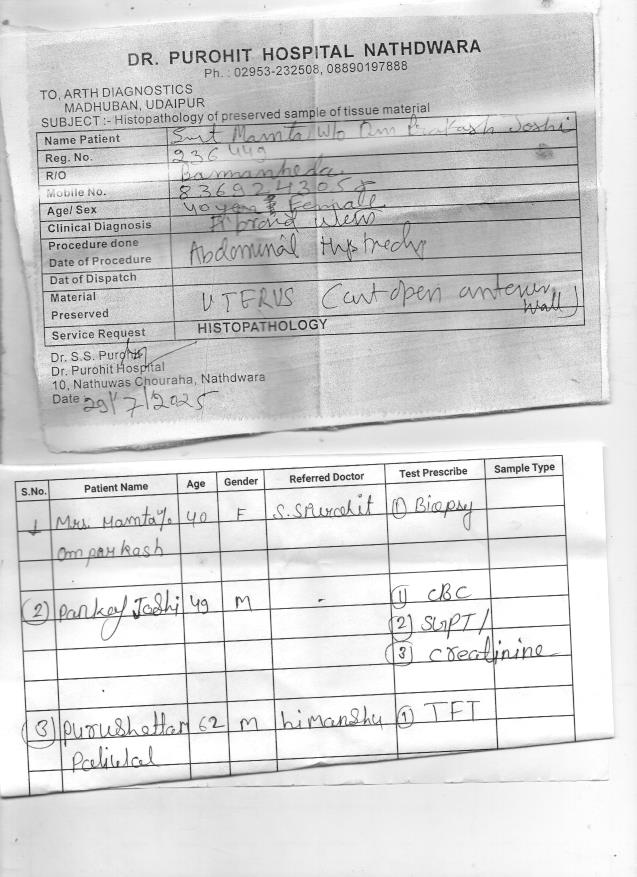 DR. PUROHIT HOSPITAL NATHDWARA
Ph. : 02953-232508, 08890197888
TO, ARTH DIAGNOSTICS
MADHUBAN, UDAIPUR
SUBJECT :- Histopathology of preserved sample of tissue material
Name Patient Smt Mamta w/o Om Prakash Joshi
Reg. No. 236449
R/O Bamanheda
Mobile No. 8369243058
Age/ Sex 40 year Female
Clinical Diagnosis Fibroid uterus
Procedure done Abdominal
Date of Procedure
Dat of Dispatch
Material UTERUS (Cut open anterior
Preserved wall)
Service Request HISTOPATHOLOGY
Dr. S.S. Purohit
Dr. Purohit Hospital
10, Nathuwas Chouraha, Nathdwara
Date 29/7/2025
S.No. Patient Name Age Gender Referred Doctor Test Prescribe Sample Type
1 Mrs. Mamta % 40 F S.S Purohit ① Biopsy
omparkash
② Pankaj Joshi 49 M - ① CBC
② SGPT /
③ Creatinine
③ Purushottam 62 M himanshu ① TFT
Paliwal